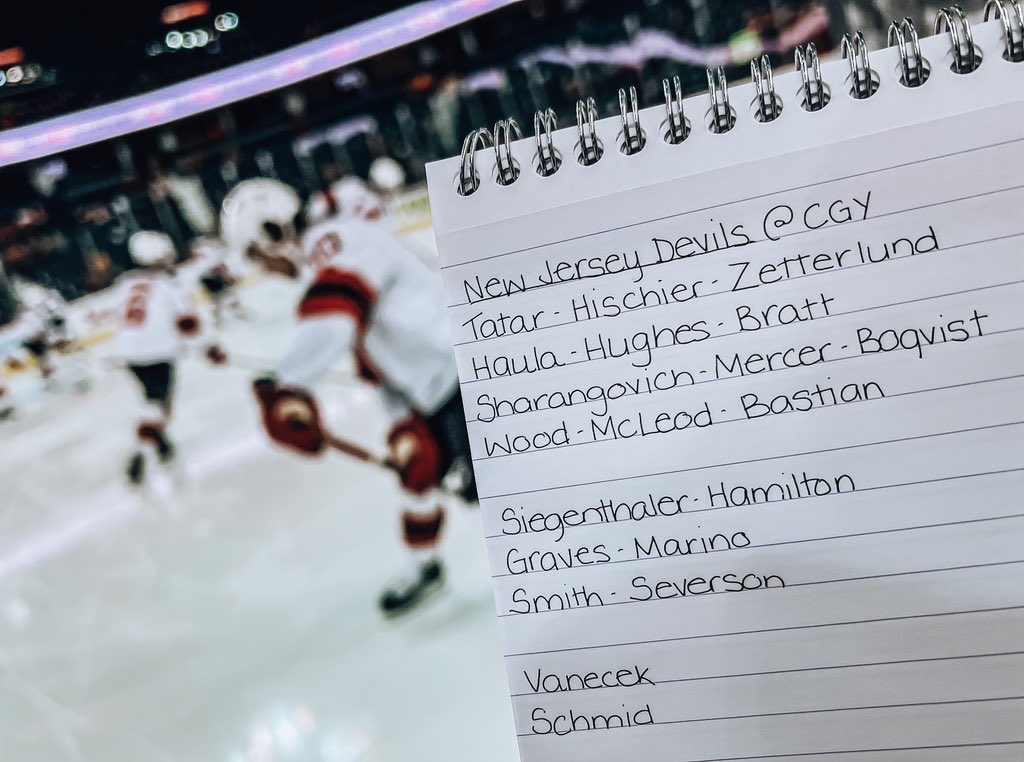 New Jersey Devils @ CGY
Tatar - Hischier - Zetterlund
Haula - Hughes - Bratt
Sharangovich - Mercer - Boqvist
Wood - McLeod - Bastian
Siegenthaler - Hamilton
Graves - Marino
Smith - Severson
Vanecek
Schmid